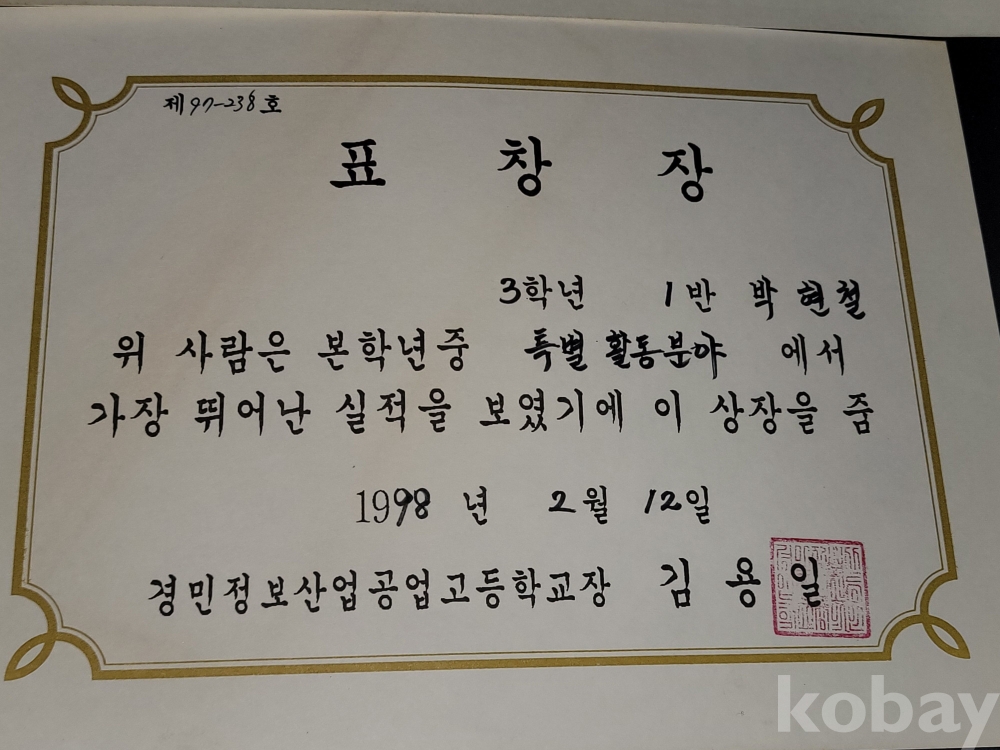 제97-238호
표 창 장
3학년 1반 박현철
위 사람은 본학년중 특별활동분야 에서
가장 뛰어난 실적을 보였기에 이 상장을 줌
1998년 2월 12일
경민정보산업공업고등학교장 김용일
kobay